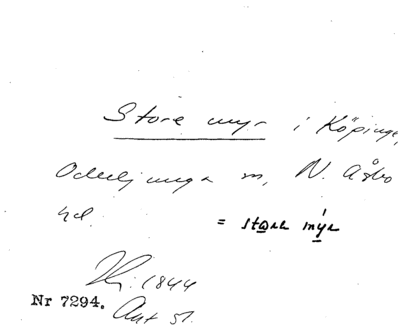 Store myr i Köpinge,
Oderljunga sn, N. Åsbo
hd.
= stǫrɛ mẙr
1844
Nr 7294. Akt 51.